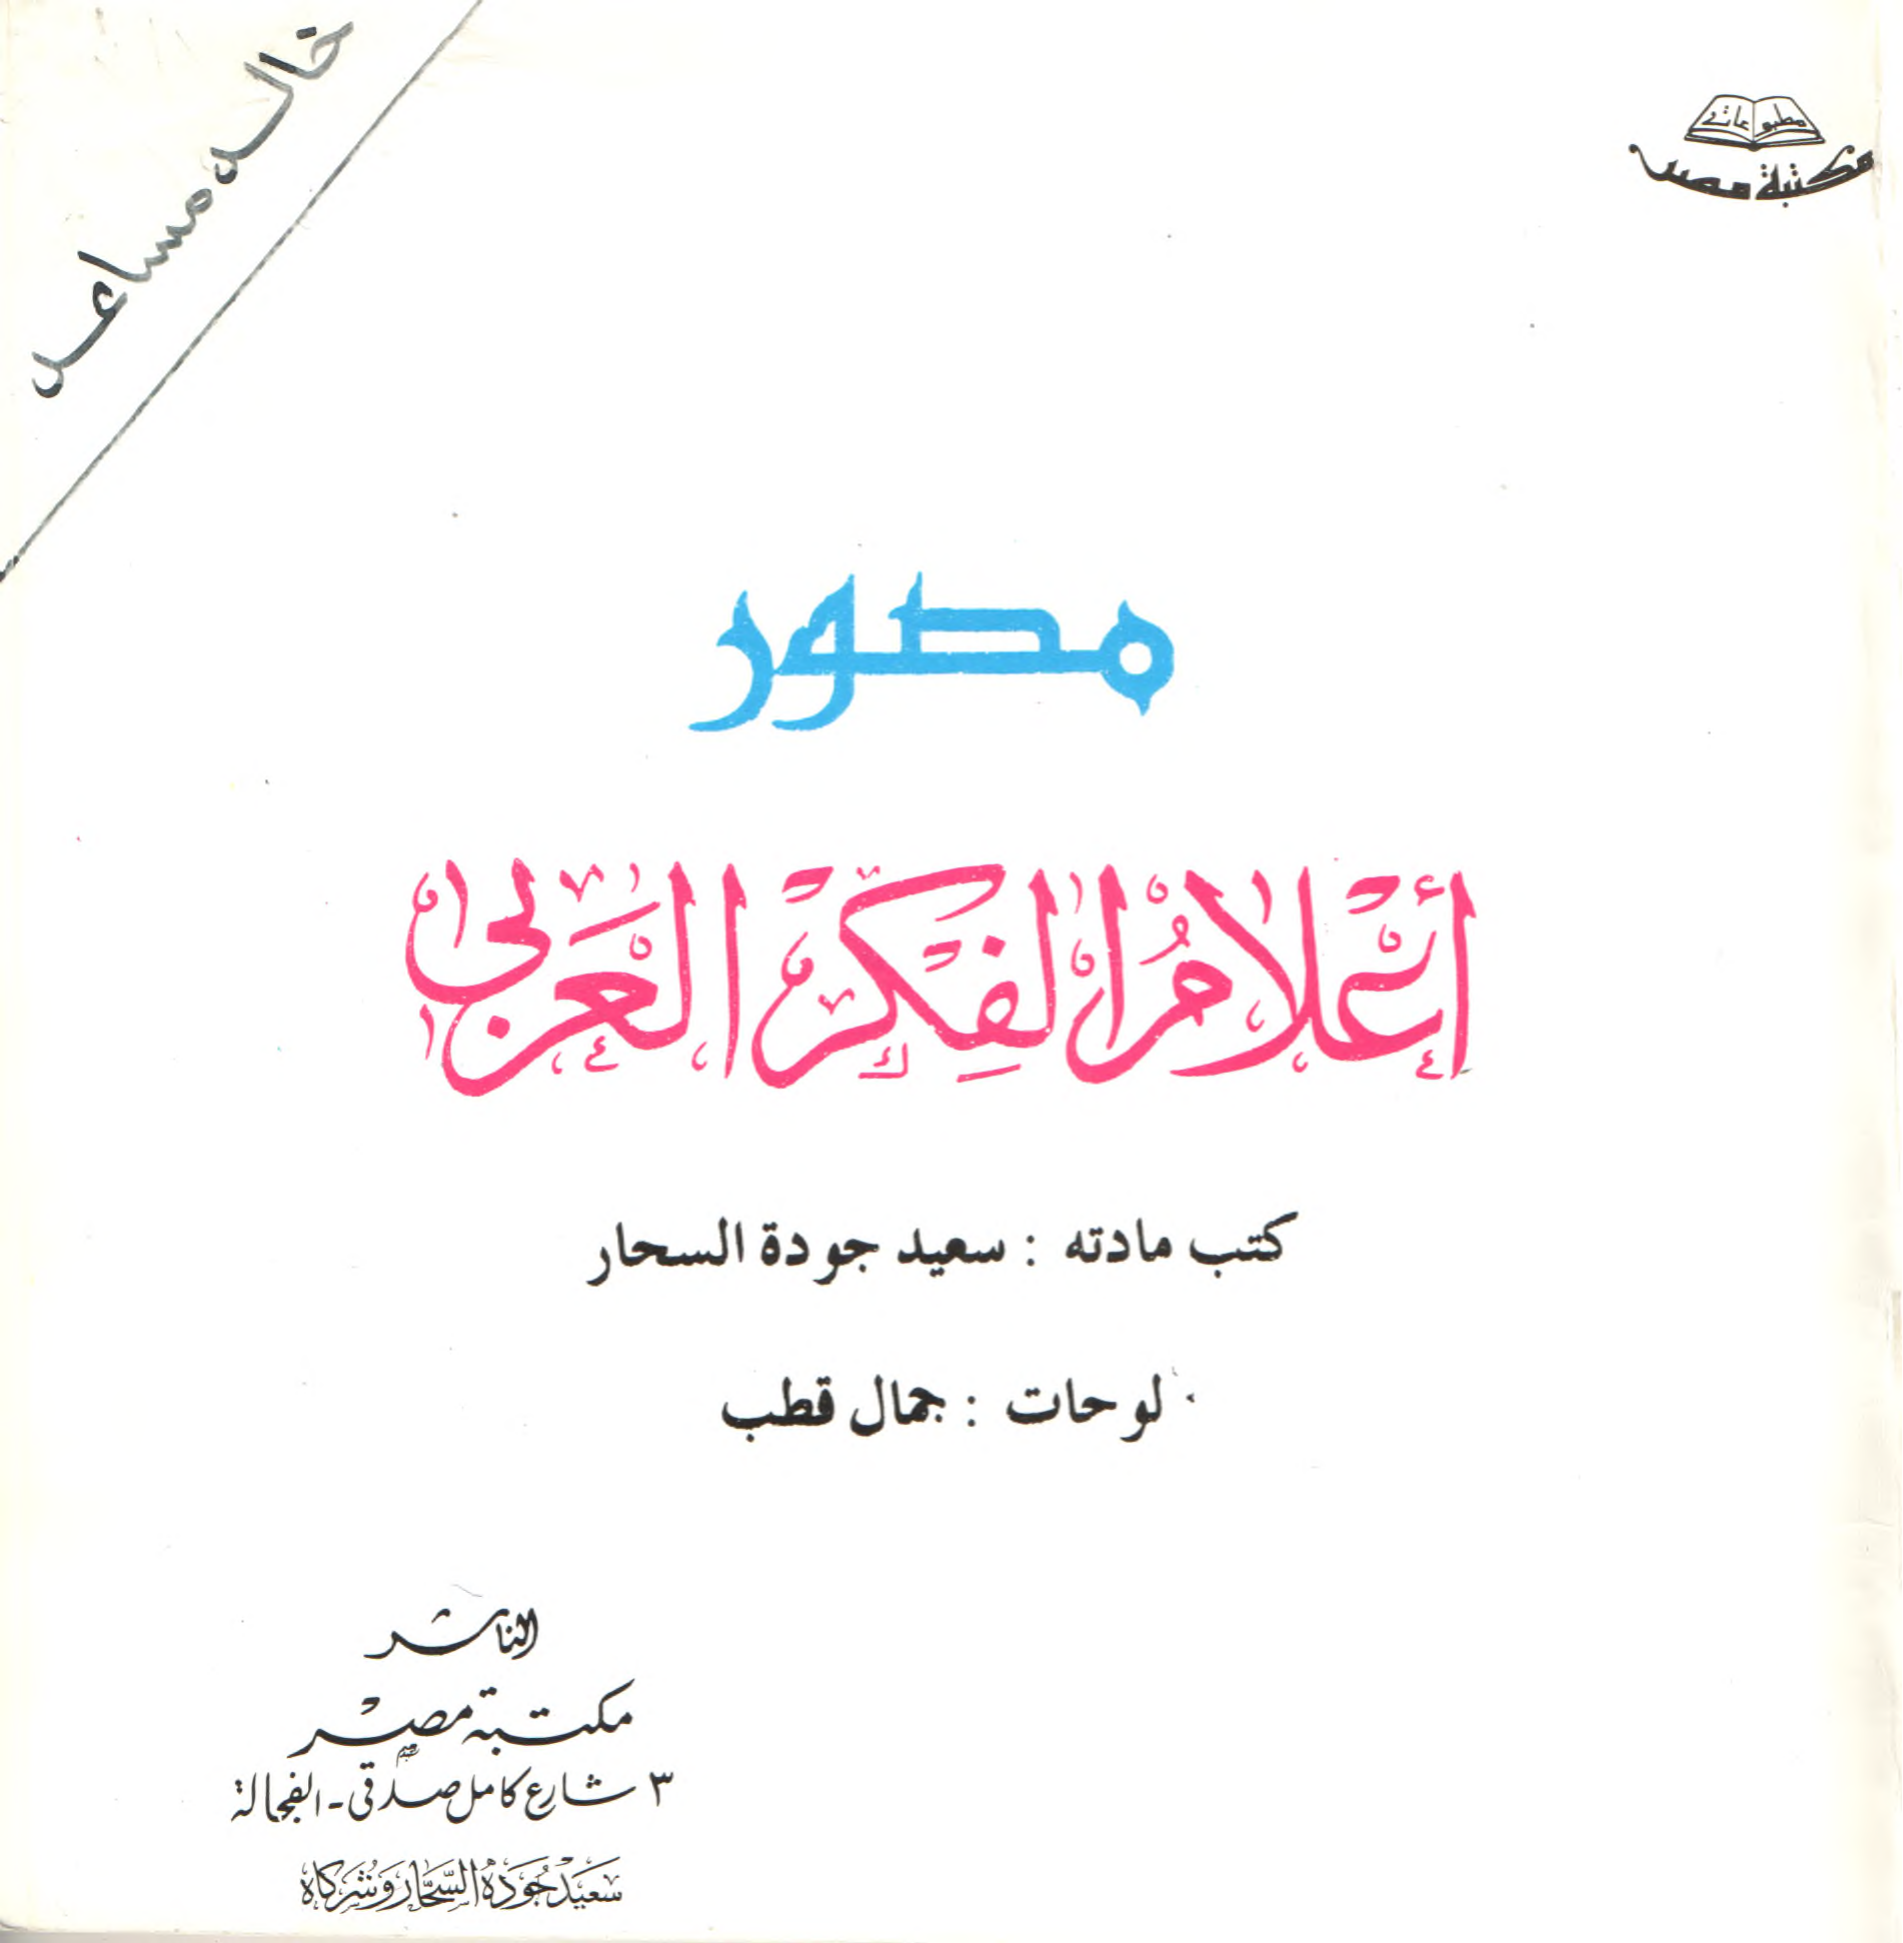 خالد مساعد
مطبوعات
مكتبة مصر
مصور
أعلام الفكر العربي
كتب مادته : سعيد جودة السحار
لوحات : جمال قطب
الناشر
مكتبة مصر
٣ شارع كامل صدقى - الفجالة
سعيد جودة السحار وشركاه